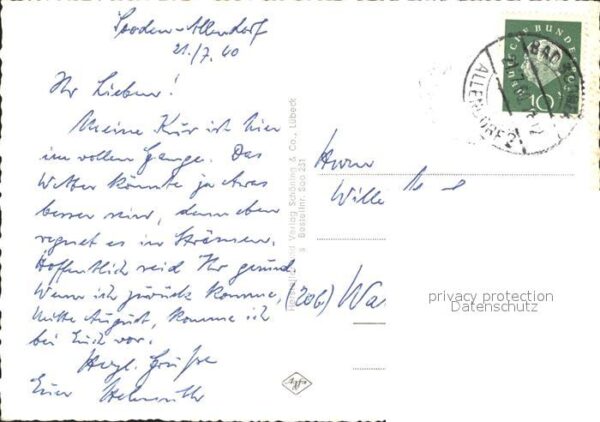 Sooden-Allendorf
21./7. 60
Ihr Lieben!
Meine Kur ist hier
im vollen Gange. Das
Wetter könnte ja etwas
besser sein, denn eben
regnet es in Strömen.
Hoffentlich seid Ihr gesund.
Wenn ich zurück komme,
Mitte August, komme ich
bei Euch vor.
Herzl. Grüße
Euer Helmuth
Verlag Schöning & Co., Lübeck
Bestellnr. Soo 251
DEUTSCHE BUNDESPOST
10
BAD
ALLENDORF
Herrn
Wille
(20b) Wa
privacy protection
Datenschutz